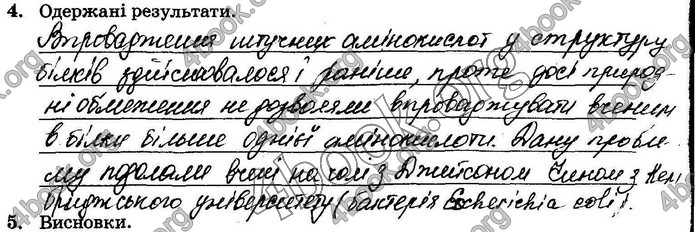 4. Одержані результати.
Впровадження штучних амінокислот у структуру
білків здійснювалося і раніше, проте досі природ-
ні обмеження не дозволяли впроваджувати вченим
в білки більше однієї амінокислоти. Дану пробле-
му подолали вчені на чолі з Джейсоном Чином з Кем
бриджського університету (бактерія Escherichia coli).
5. Висновки.
4book.org